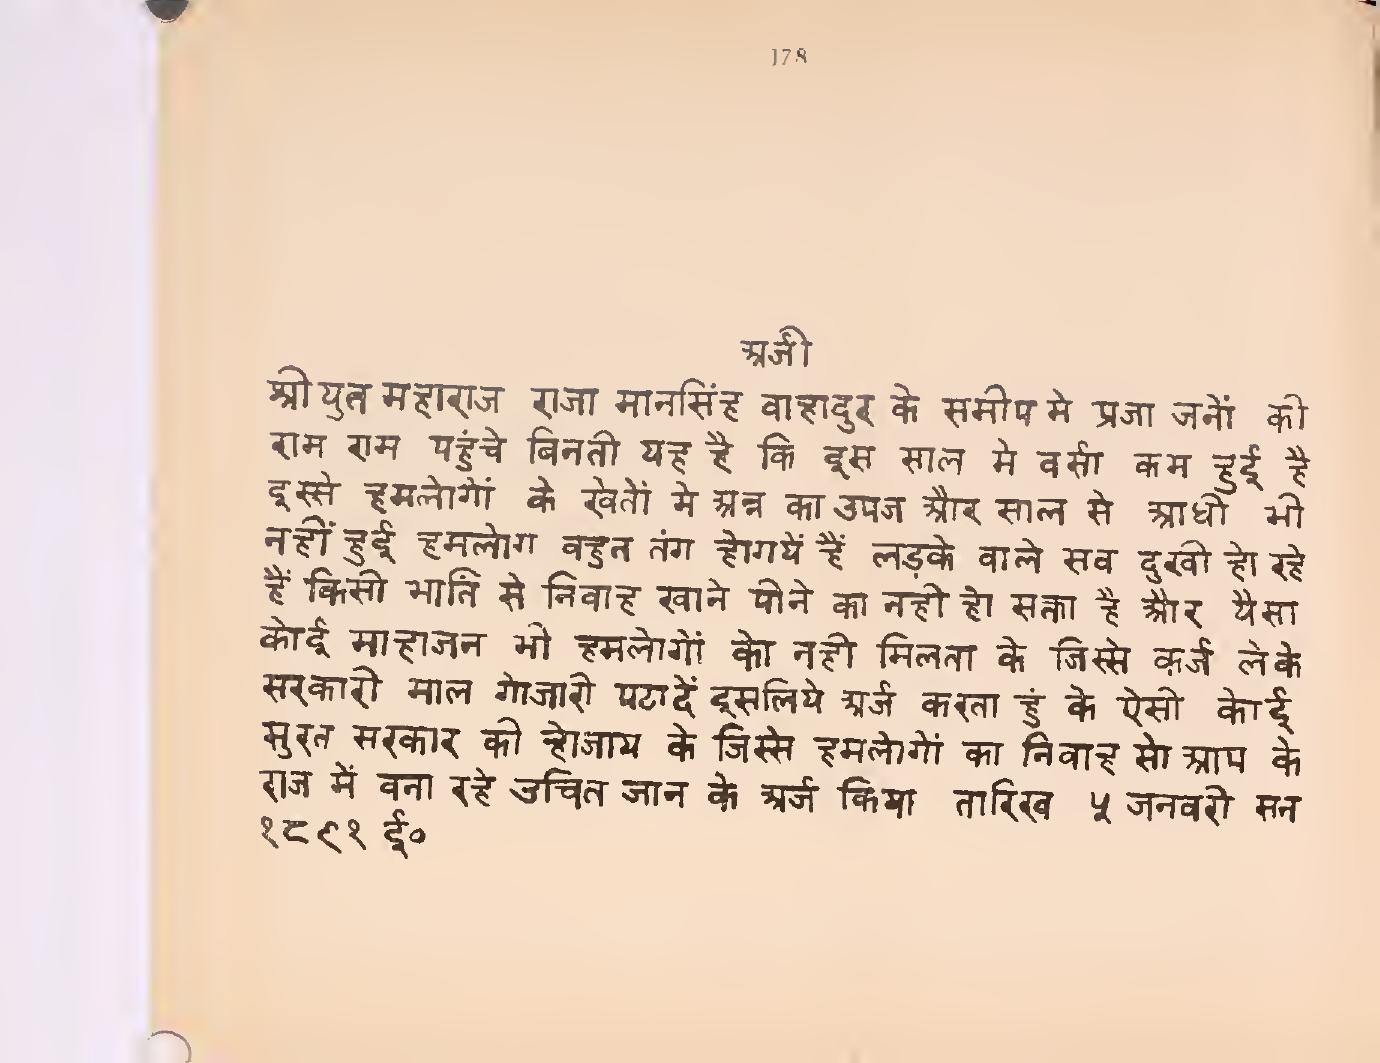 178
अर्जी
श्रीयुत महाराज राजा मानसिंह वाहादुर के समीप मे प्रजा जनों की
राम राम पहुंचे बिनती यह है कि इस साल मे वर्सा कम हुई है
इस्से हमलोगों के खेतों मे अन्न का उपज और साल से आधी भी
नहीं हुई हमलोग वहुत तंग होगयें हैं लड़के वाले सव दुखी हो रहे
हैं किसी भाति से निवाह खाने पीने का नही हो सक्ता है और यैसा
कोई माहाजन भी हमलोगों को नही मिलता के जिस्से क़र्ज लेके
सरकारी माल गोजारी पटादें इसलिये अर्ज करता हुं के ऐसी कोई
सुरत सरकार की होजाय के जिस्से हमलोगों का निवाह सो आप के
राज में वना रहे उचित जान के अर्ज किया तारिख ५ जनवरी सन
१८९१ ई०